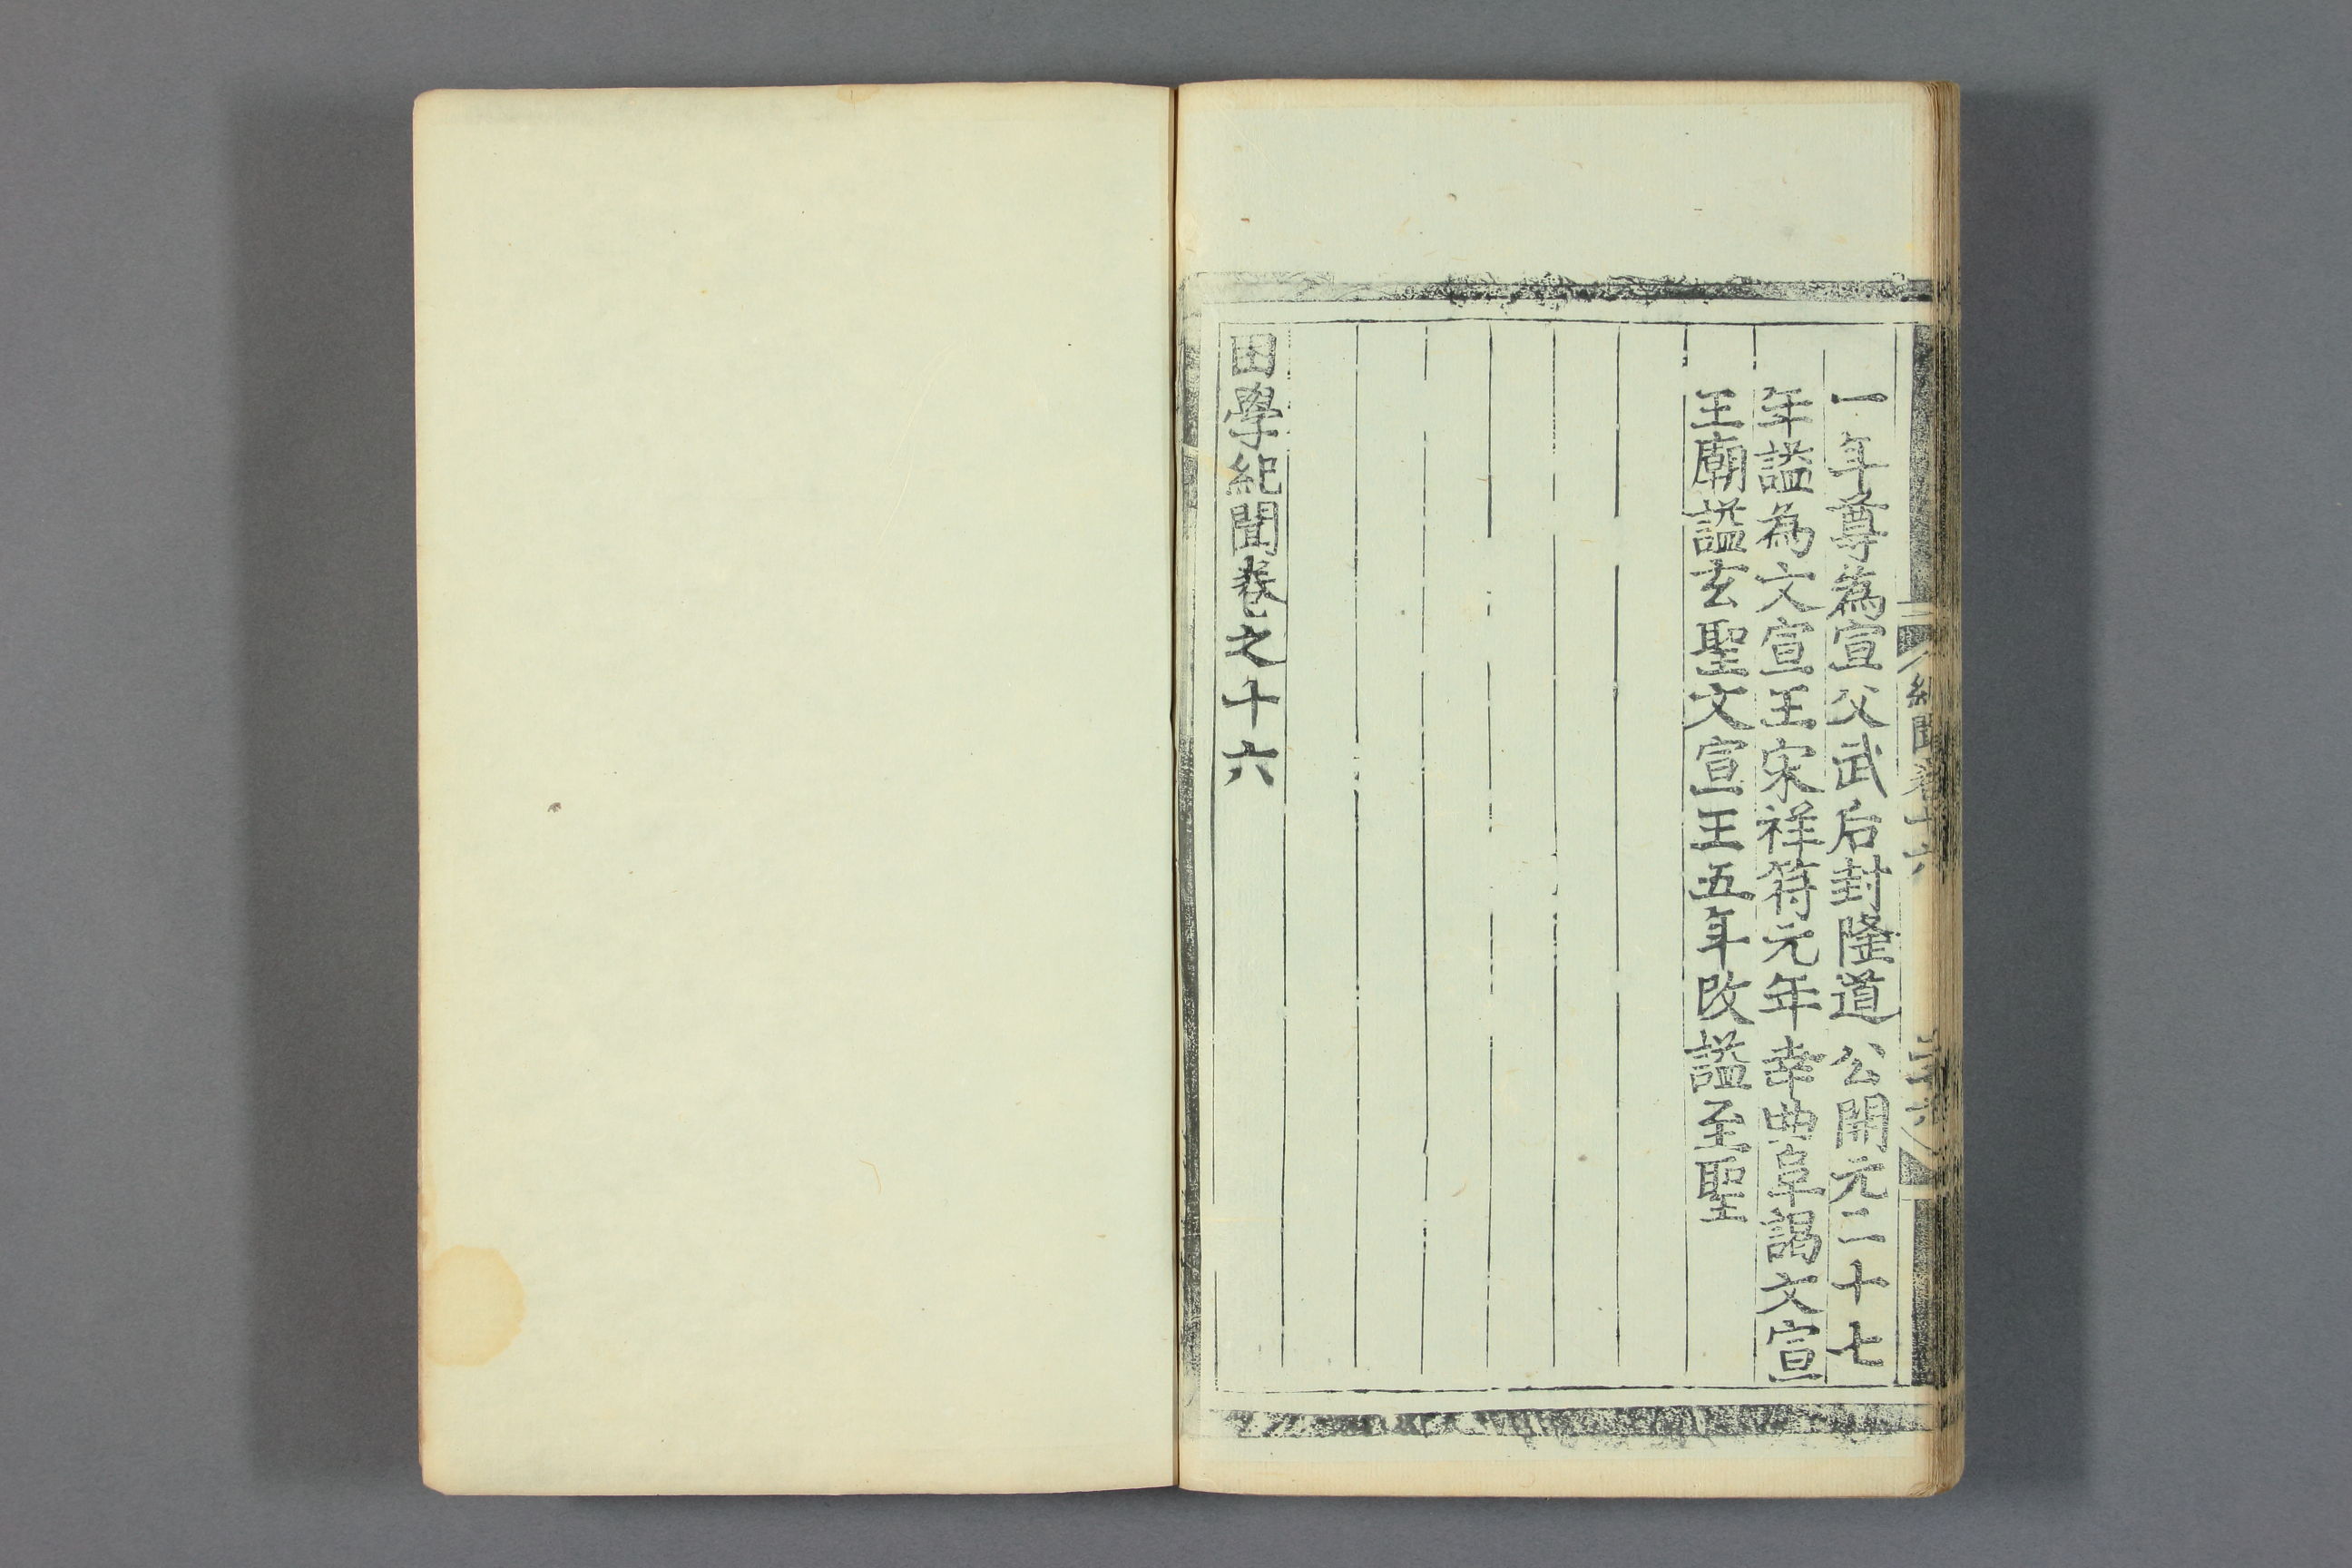 一年尊為宣父武后封隆道公開元二十七
年諡為文宣王宋祥符元年幸曲阜謁文宣
王廟諡玄聖文宣王五年改諡至聖
困學紀聞卷之十六